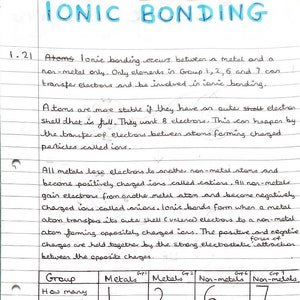 IONIC BONDING
1.21 Atoms Ionic bonding occurs between a metal and a
non-metal only. Only elements in Group 1, 2, 6 and 7 can
transfer electrons and be involved in ionic bonding.
Atoms are more stable if they have an outer shell electron
shell that is full. They want 8 electrons. This can happen by
the transfer of electrons between atoms forming charged
particles called ions.
All metals lose electrons to another non-metal atoms and
become positively charged ions called cations. All non-metals
gain electrons from another metal atom and become negatively
charged ions called anions. Ionic bonds form when a metal
atom transfers its outer shell (valence) electrons to a non-metal
atom forming oppositely charged ions. The positive and negative
charges are held together by the strong electrostatic forces of attraction
between the opposite charges.
Group Metals Grp 1 Metals Grp 2 Non-metals Grp 6 Non-metals Grp 7
How many 1 2 6 7